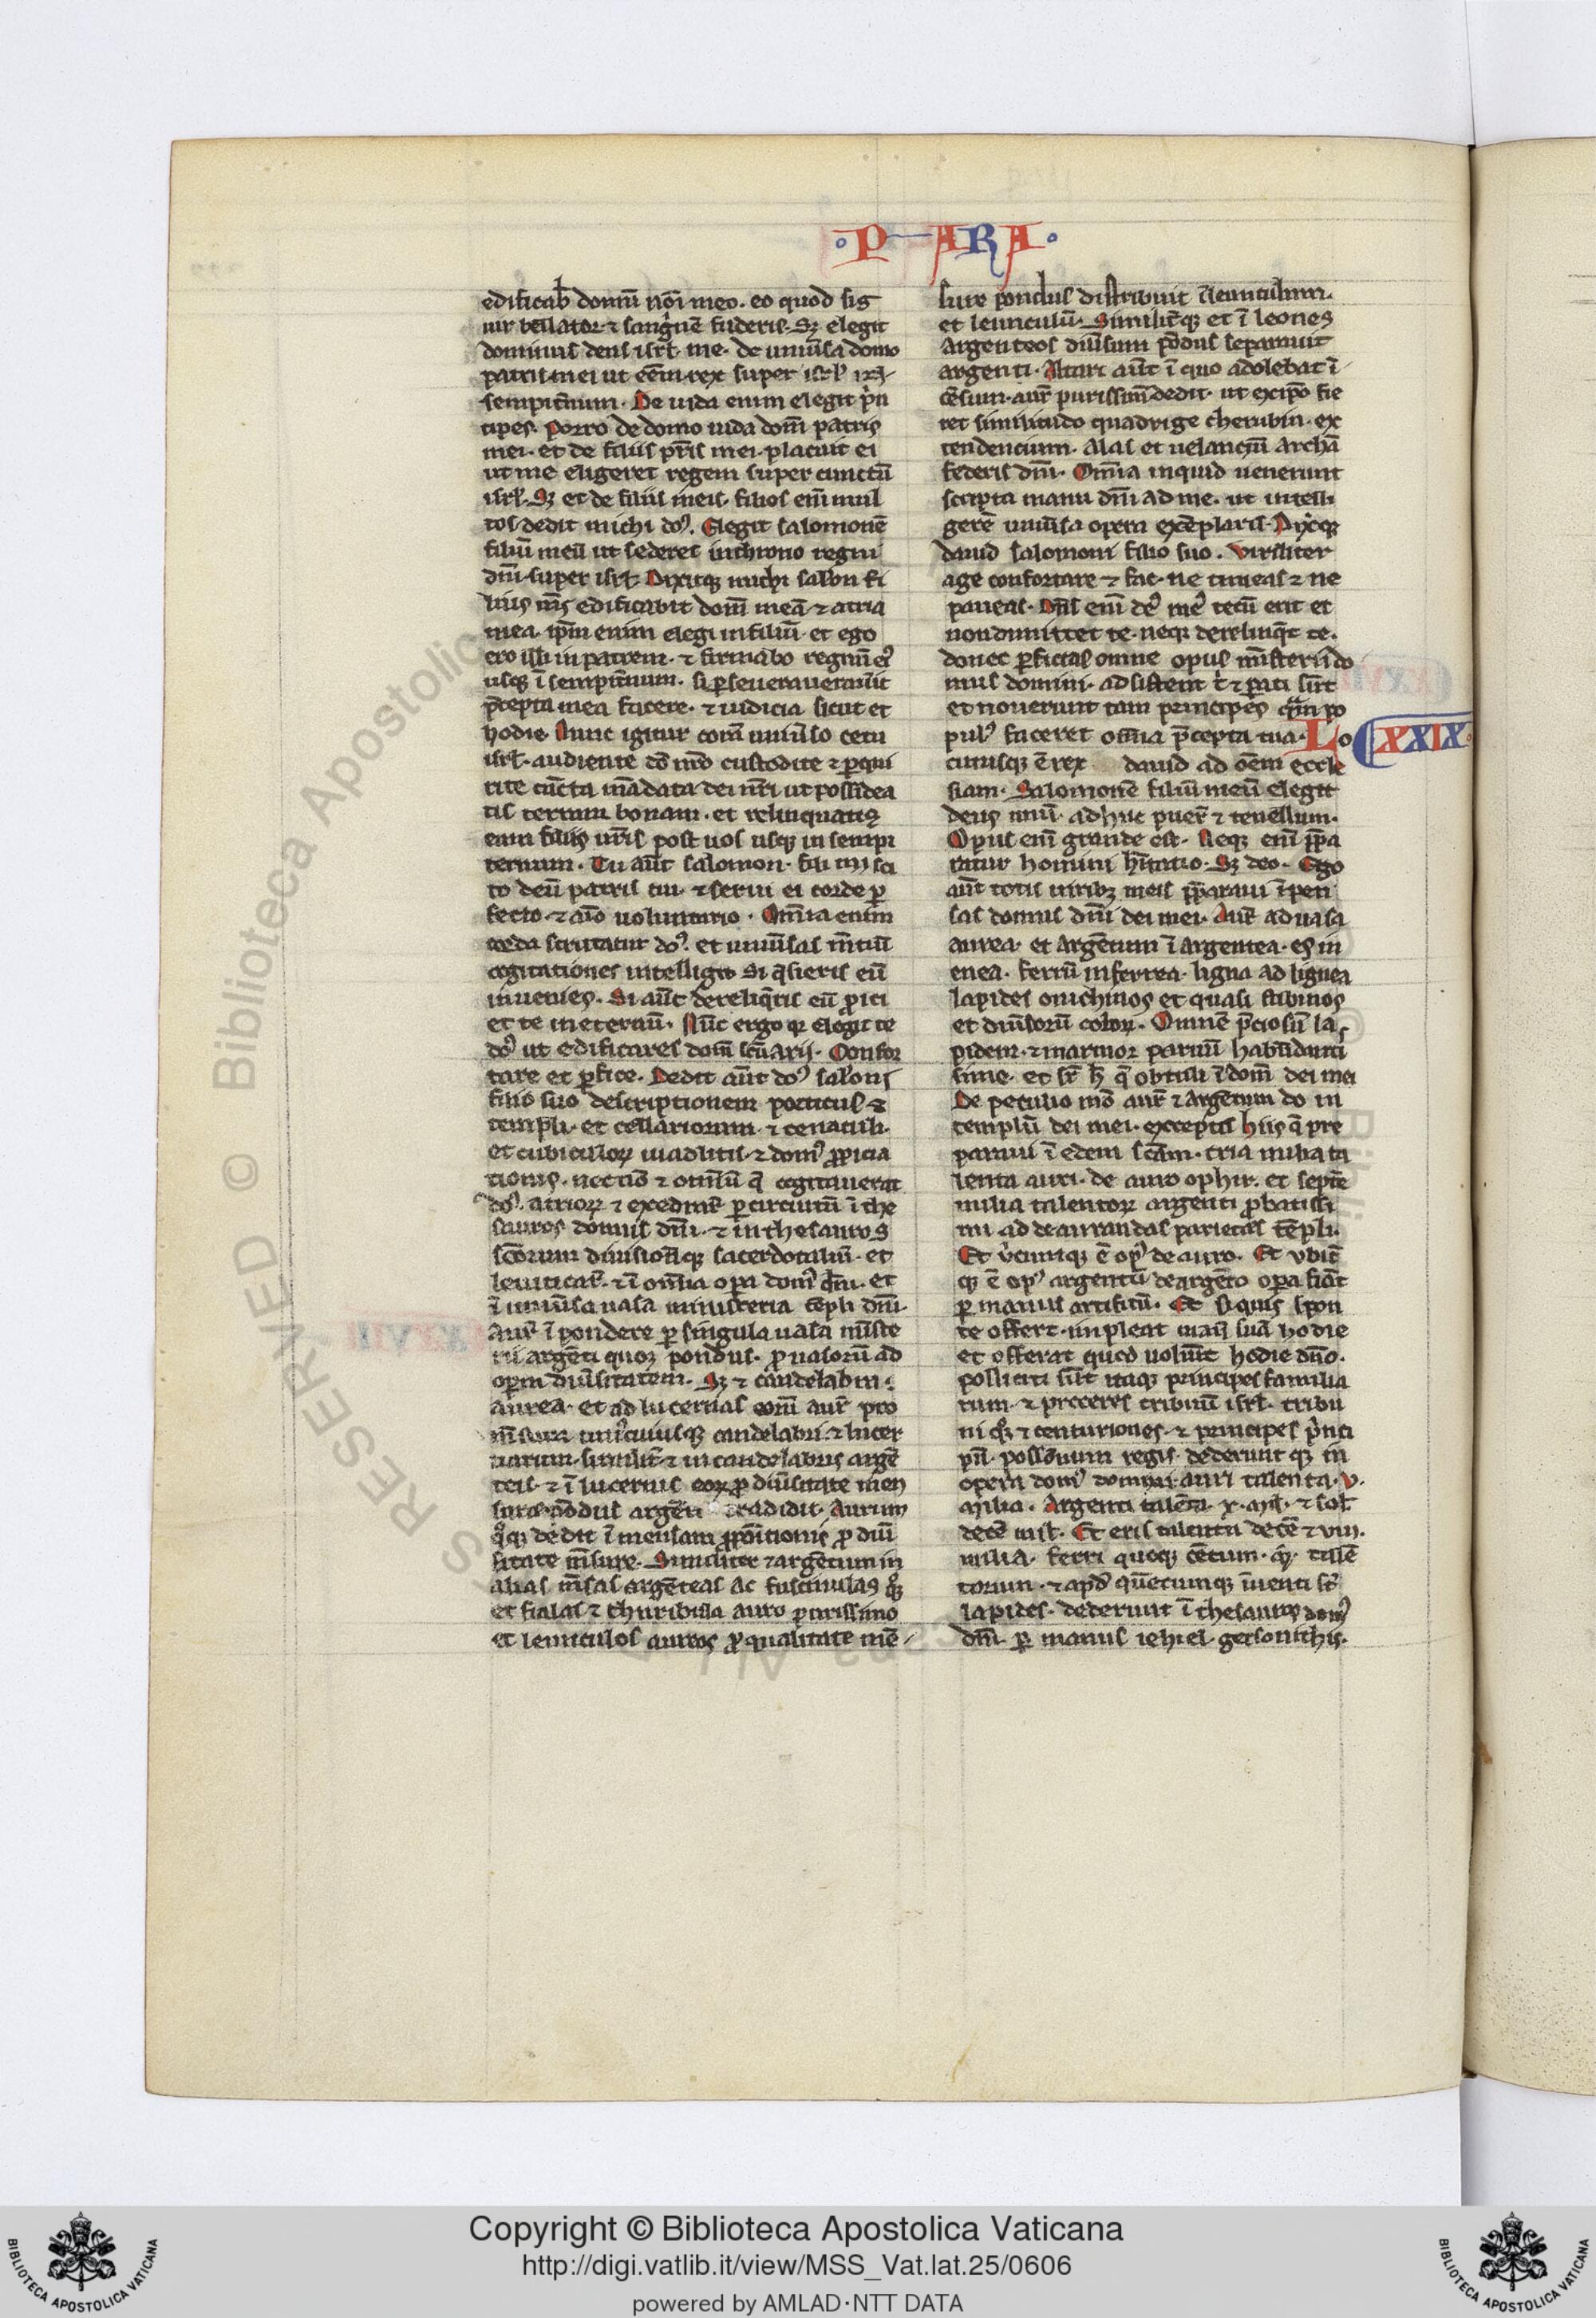 ·P—ARA·
edificab̄ domū nōi meo. eo quod sis
uir bellator ⁊ sanguinē fuderis. Sꝫ elegit
dominus deus isrł. me. de uniũsa domo
patris mei ut eēm rex super isrł in
sempit̄num. De iuda enim elegit p̓n
cipes. Porro de domo iuda dom̄ patris
mei. et de filiis pr̄is mei. placuit ei
ut me eligeret regem super cunctū
isrł. Sꝫ et de filiis meis. filios eni͞m mul
tos dedit michi do᷒. Elegit salomonē
filiū meū ut sederet in throno regni
dñi. super isrł. Dixitqꝫ michi salōn fi
lius tu᷒ edificabit dom̄ meā ⁊ atria
mea. ip̄m enim elegi in filiū. et ego
ero illi in patrem. ⁊ firmabo regnū ei᷒
usqꝫ ī sempit̄num. si ꝑseuerauerit
p̄cepta mea facere. ⁊ iudicia sicut et
hodie. Nunc igitur corā uniũso cetu
isrł. audiente dō nr̄o custodite ⁊ ꝑqui
rite cūcta mādata dei nr̄i ut possidea
tis terram bonam. et relinquatis
eam filiis ur̄is post uos usqꝫ in sempi
ternum. Tu aūt salomon. fili mi sci
to deū patris tui. ⁊ serui ei corde ꝑ
fecto. ⁊ aīo uoluntario. Om̄ia enim
corda scrutatur do᷒. et uniũsas m̄tiū
cogitationes intelligit. Si q̄sieris eū
inuenies. Si aūt dereliq̄ris eū ꝓici
et te in eternū. Nūc ergo qꝛ elegit te
do᷒ ut edificares dom̄ sc̄uarii. Confor
tare et ꝑfice. Dedit aūt do᷒ salōni
filio suo descriptionem porticus ⁊
templi. et cellariorum. ⁊ cenaculi.
et cubiculoꝝ in aditis. ⁊ dom᷒ ꝓpicia
tionis. necnō ⁊ om̄iū q̄ cogitauerat
do᷒. atrioꝝ ⁊ exedrar̄ ꝑ circuitū ī the
sauros domus dñi. ⁊ in thesauros
sc̄orum diuisionūqꝫ sacerdotaliū. et
leuiticar̄. ⁊ ī om̄ia oꝑa dom᷒ dñi. et
ī uniũsa uasa ministeria tēpli dñi.
Aur̄ ī pondere ꝑ singula uasa mīste
rii argēti quoqꝫ pondus. ꝓ uasorū ad
oꝑum diũsitatem. Sꝫ ⁊ candelabra
aurea. et ad lucernas eorū aur̄ pro
m̄sura uni᷒cuiusqꝫ candelabri. ⁊ lucer
narum. similit̄ ⁊ in candelabris argē
teis. ⁊ ī lucernis eoꝝ ꝓ diũsitate men
sure. pōdus argēti tradidit. Aurum
q̊qꝫ dedit ī mensam ꝓpōitionis ꝓ diũ
sitate m̄sure. Similiter ⁊ argētum in
alias m̄sas argēteas ac fuscinulas q̊qꝫ
et fialas ⁊ thuribula auro purissimo
et leunculos aureos ꝓ qualitate mē-
sure pondus distribuit ī leunculum.
et leunculū. Similit̄qꝫ et ī leones
argenteos diũsum pōdus separauit
argenti. Altari aūt ī quo adolebat̄ ī
cēsum. aur̄ purissimū dedit. ut ex ip̄o fie
ret similitudo quadrige cherubin. ex
tendencium. alas et uelanciū archā
federis dñi. Om̄ia inquid uenerunt
scripta manu dñi ad me. ut intelli
gerē uniũsa opera exēplaris. Dixitqꝫ
dauid salomoni filio suo. Viriliter
age confortare ⁊ fac. ne timeas ⁊ ne
paueas. Dñs eni͞m de᷒ me᷒ tecū erit et
non dimittet te. neqꝫ derelinq̄t te.
donec ꝑficias omne opus mīsterii do
mus domini. adsistent t̓ ⁊ ꝑati sūt
et nouerunt tam principes q̄m po
pul᷒ facere om̄ia p̄cepta tua. Lo
XXIX.
cutusqꝫ ē rex dauid ad ōēm eccle
siam. Salomonē filiū meū elegit
deus unū. adhuc puer̄ ⁊ tenellum.
Opus eni͞m grande est. Neqꝫ eni͞m p̄pa
ratur homini hītatio. Sꝫ deo. Ego
aūt totis uiribꝫ meis p̄paraui īpen
sas domus dñi dei mei. Aur̄ ad uasa
aurea. et argētum ī argentea. es in
enea. ferrū in ferrea. ligna ad lignea
lapides onichinos et quasi stibinos
et diũsorū coloꝝ. Omnē p̄ciosū la
pidem. ⁊ marmor parium habūdanti
sime. et sr̄ h̄ q̄ obtuli ī dom̄ dei mei
De peculio mō aur̄ ⁊ argētum do in
templū dei mei. exceptis hiis q̄ pre
paraui ī edem sc̄am. tria milia ta
lenta auri. de auro ophir. et septē
milia talentoꝝ argenti ꝓbatissi
mi ad deaurandas parietes tēpli.
Et ubicumqꝫ ē op᷒ de auro. Et ubicū
qꝫ ē op᷒ argentū de argēto oꝑa fiāt
ꝑ manus artificū. Et si quis spon
te offert. impleat manū suā hodie
et offerat quod uoluīt hodie dño.
polliciti sūt itaqꝫ principes familia
rum. ⁊ proceres tribuū isrł. tribu
ni qꝫ ⁊ centuriones. ⁊ principes p̓nci
pū. possōnum regis. dederunt qꝫ in
opera dom᷒ domini auri talenta. v.
milia. Argenti talēta. x. mil. ⁊ sol.
decē mil. Et eris talenta decē ⁊ viii.
milia. ferri quoqꝫ cētum. m̄. talē
torum. ⁊ apd̄ quēcumqꝫ īuenti sūt
lapides. dederunt ī thesauros dom᷒
dñi. ꝑ manus iehiel. gersonithis.
Copyright © Biblioteca Apostolica Vaticana
http://digi.vatlib.it/view/MSS_Vat.lat.25/0606
powered by AMLAD·NTT DATA
BIBLIOTECA APOSTOLICA VATICANA
BIBLIOTECA APOSTOLICA VATICANA